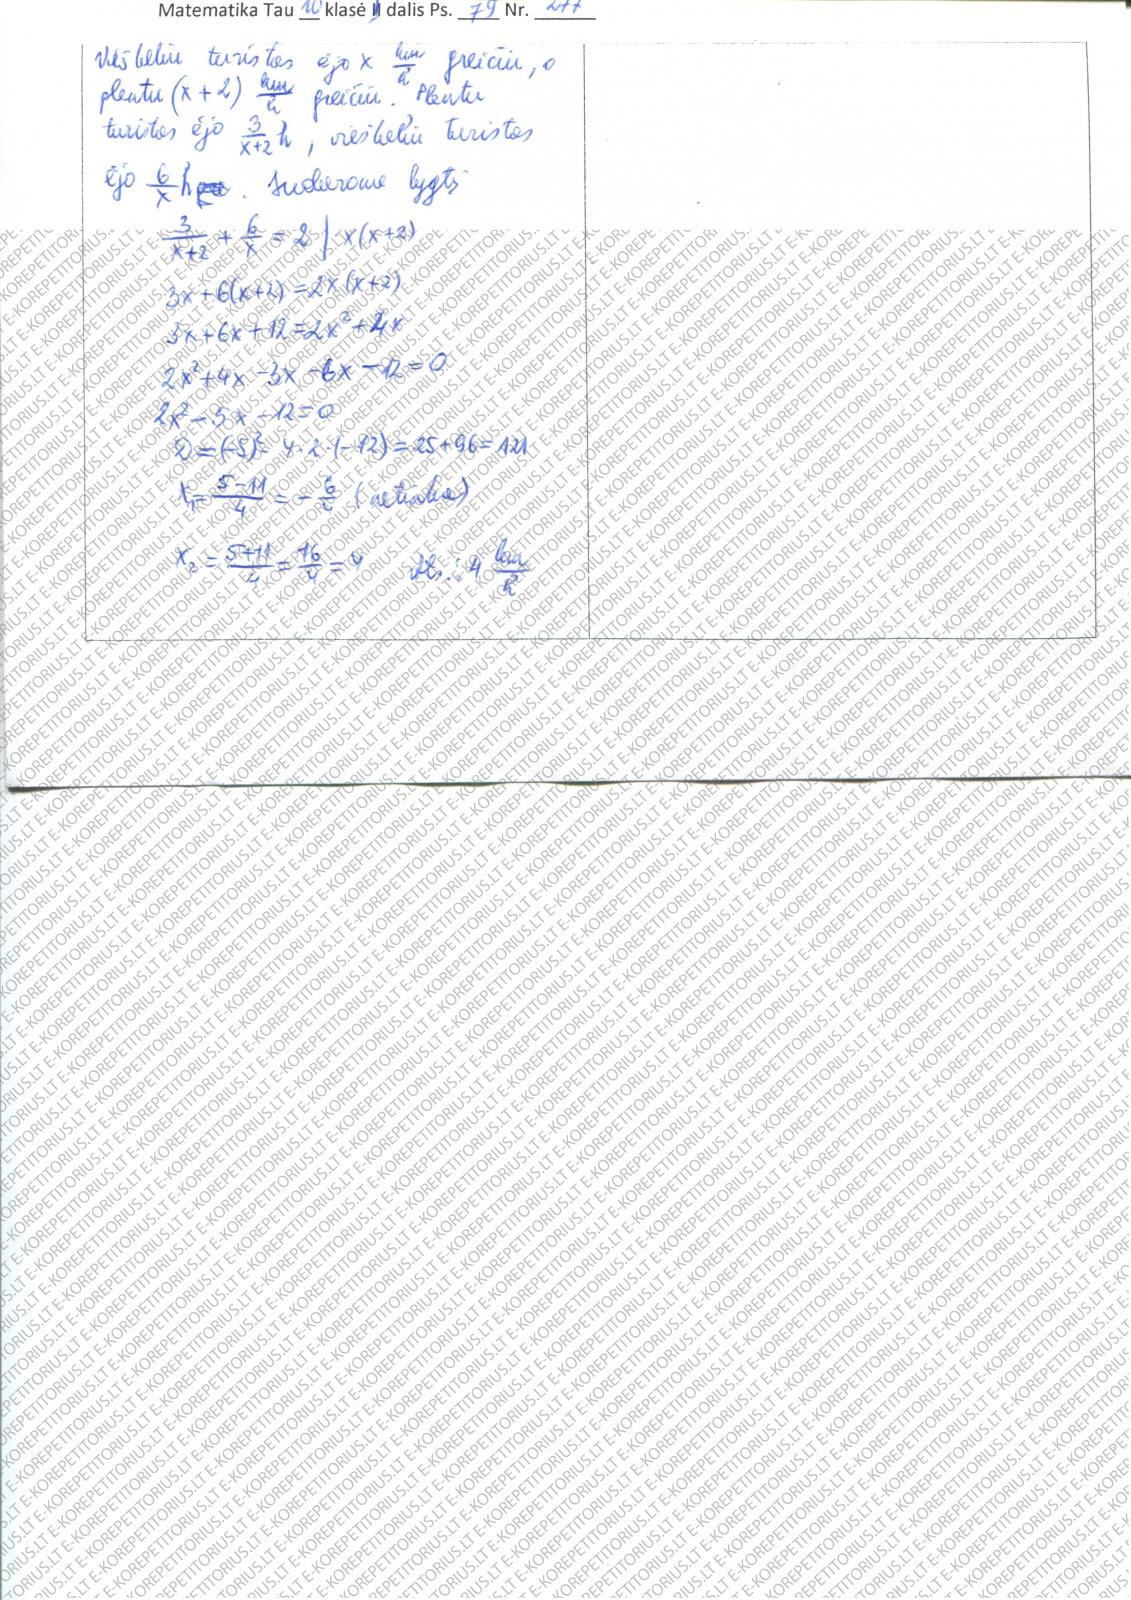 Matematika Tau 10 klasė II dalis Ps. 79 Nr. 277
Vieškeliu turistas ėjo x km/h greičiu, o
plentu (x+2) km/h greičiu. Plentu
turistas ėjo 3/(x+2) h, vieškeliu turistas
ėjo 6/x h. Sudarome lygtį
3/(x+2) + 6/x = 2 | x(x+2)
3x+6(x+2)=2x(x+2)
3x+6x+12=2x²+4x
2x²+4x-3x-6x-12=0
2x²-5x-12=0
D=(-5)²-4·2·(-12)=25+96=121
x₁=(5-11)/4=-6/4 (netinka)
x₂=(5+11)/4=16/4=4 Ats.: 4 km/h
E-KOREPETITORIUS.LT